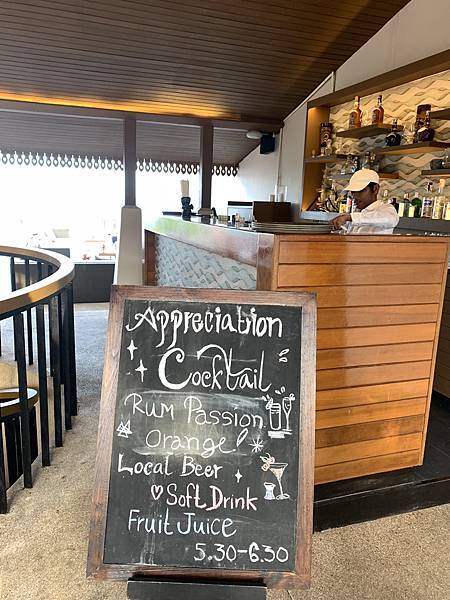 Appreciation
Cocktail
Rum Passion
Orange
Local Beer
Soft Drink
Fruit Juice
5.30-6.30